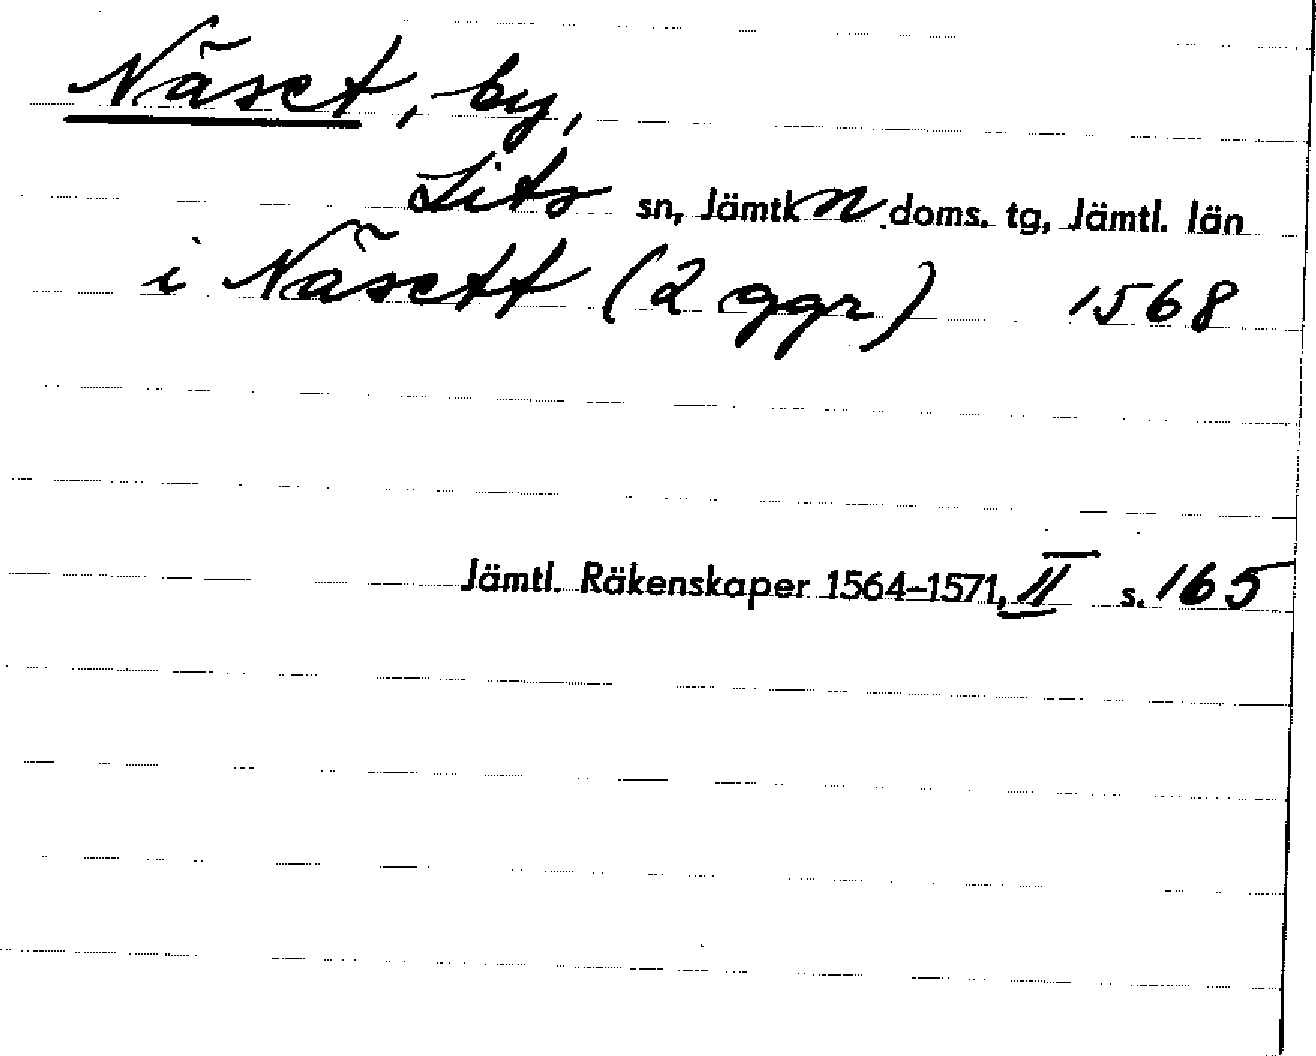 Näset, by,
Lits sn, Jämtl. n. doms. tg, Jämtl. län
i Näsett (2 ggr) 1568
Jämtl. Räkenskaper 1564–1571, II s. 165